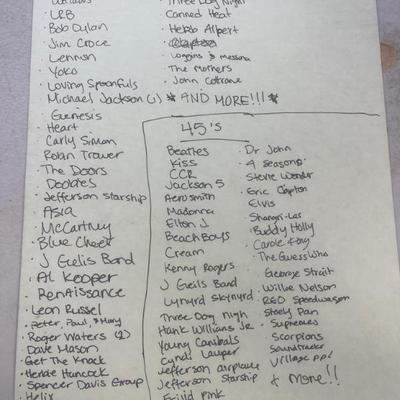 LRB
Bob Dylan
Jim Croce
Lennon
Yoko
Loving Spoonfuls
Michael Jackson (1)
Genesis
Heart
Carly Simon
Robin Trower
The Doors
Doobies
Jefferson Starship
Asia
McCartney
Blue Cheer
J Geils Band
Al Kooper
Renaissance
Leon Russel
Peter, Paul, & Mary
Roger Waters (2)
Dave Mason
Get The Knack
Herbie Hancock
Spencer Davis Group
Helix
Three Dog Night
Canned Heat
Herb Alpert
Loggins & Messina
The Mothers
John Coltrane
* AND MORE!!! *
45's
Beatles
Kiss
CCR
Jackson 5
Aerosmith
Madonna
Elton J
Beach Boys
Cream
Kenny Rogers
J Geils Band
Lynyrd Skynyrd
Three Dog Nigh
Hank Williams Jr.
Young Canibals
Cyndi Lauper
Jefferson airplane
Jefferson Starship
Frijid Pink
Dr John
4 Seasons
Stevie Wonder
Eric Clapton
Elvis
Shangri-Las
Buddy Holly
Carole King
The Guess Who
George Strait
Willie Nelson
REO Speedwagon
Steely Dan
Supremes
Scorpions
Soundtracks
Village Ppl
& more!!